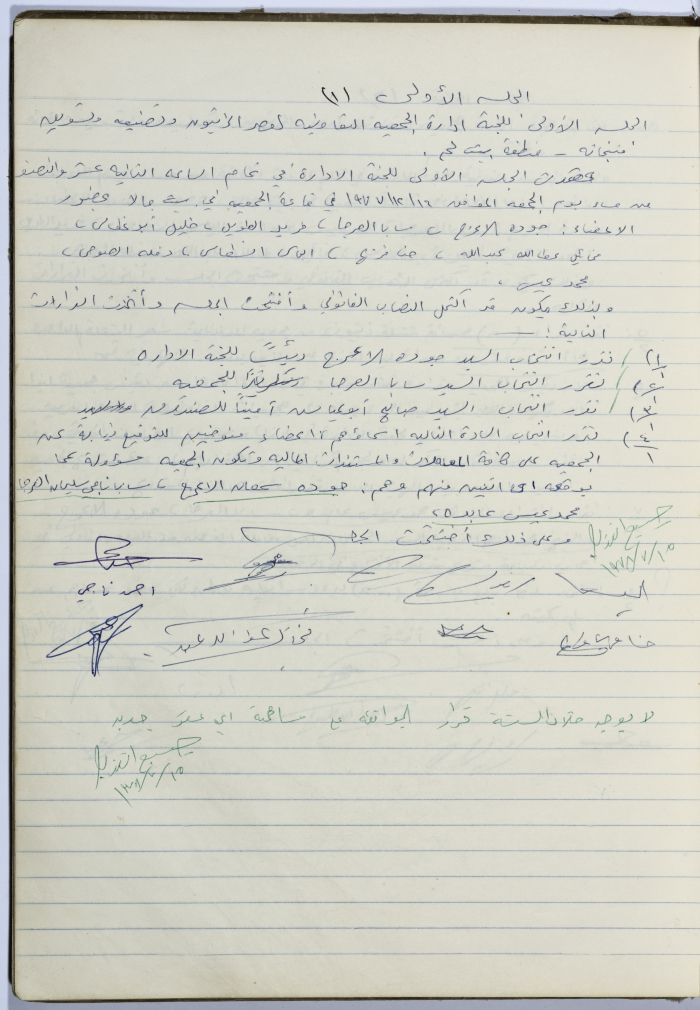 الجلسه الأولى (١)
الجلسه الأولى للجنة ادارة الجمعيه التعاونيه لعصر الزيتون وتصنيعه وتسويق
منتجاته - منطقة بيت لحم .
عقدت الجلسه الأولى للجنة الادارة في تمام الساعه الثانيه عشر والنصف
من مساء يوم الجمعه الموافق ١٩٧٧/١٢/١٦ في قاعة الجمعيه في بيت جالا بحضور
الاعضاء : جوده الاعرج ، سابا العرجا ، فريد الطويل ، خليل أبو غطاس ،
عطالله عبدالله ، حنا فريج ، الياس الشطاس ، دخله الصوص ،
محمد عيسى ،
وبذلك يكون قد اكتمل النصاب القانوني وأفتتحت الجلسه وأتخذت القرارات
التالية : ـــ
١) تقرر انتخاب السيد جوده الاعرج رئيسًا للجنة الاداره
٢) تقرر انتخاب السيد سابا العرجا سكرتيرًا للجمعيه
٣) تقرر انتخاب السيد صالح أبو عياش أمينًا للصندوق
٤) تقرر انتخاب السادة التاليه اسماؤهم ٣ اعضاء مفوضين للتوقيع نيابة عن
الجمعيه على كافة المعاملات والمستندات الماليه وتكون الجمعيه مسؤولة عما
يوقعه اى اثنين منهم وهم : جوده سمعان الاعرج ، سابا ناجي سليمان العرجا
محمد عيسى عابده
وعلى ذلك أختتمت الجلسه
١٩٧٨/٢/١٥
احمد ناجي
لا يوجد خلال السنة قرار الموافقه على مساهمة اي عضو جديد
١٩٧٨/٢/١٥